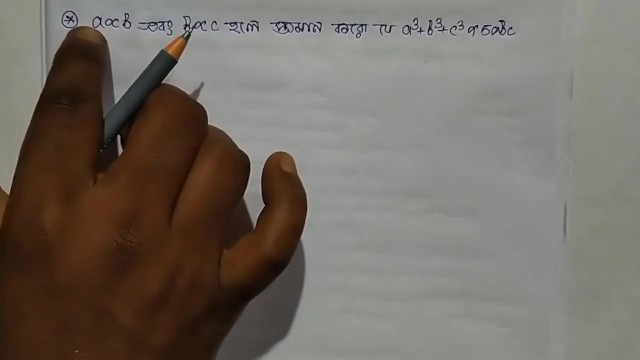 * a∝B এবং B∝c হলে প্রমাণ করো যে a³+B³+c³ ∝ 5aBc